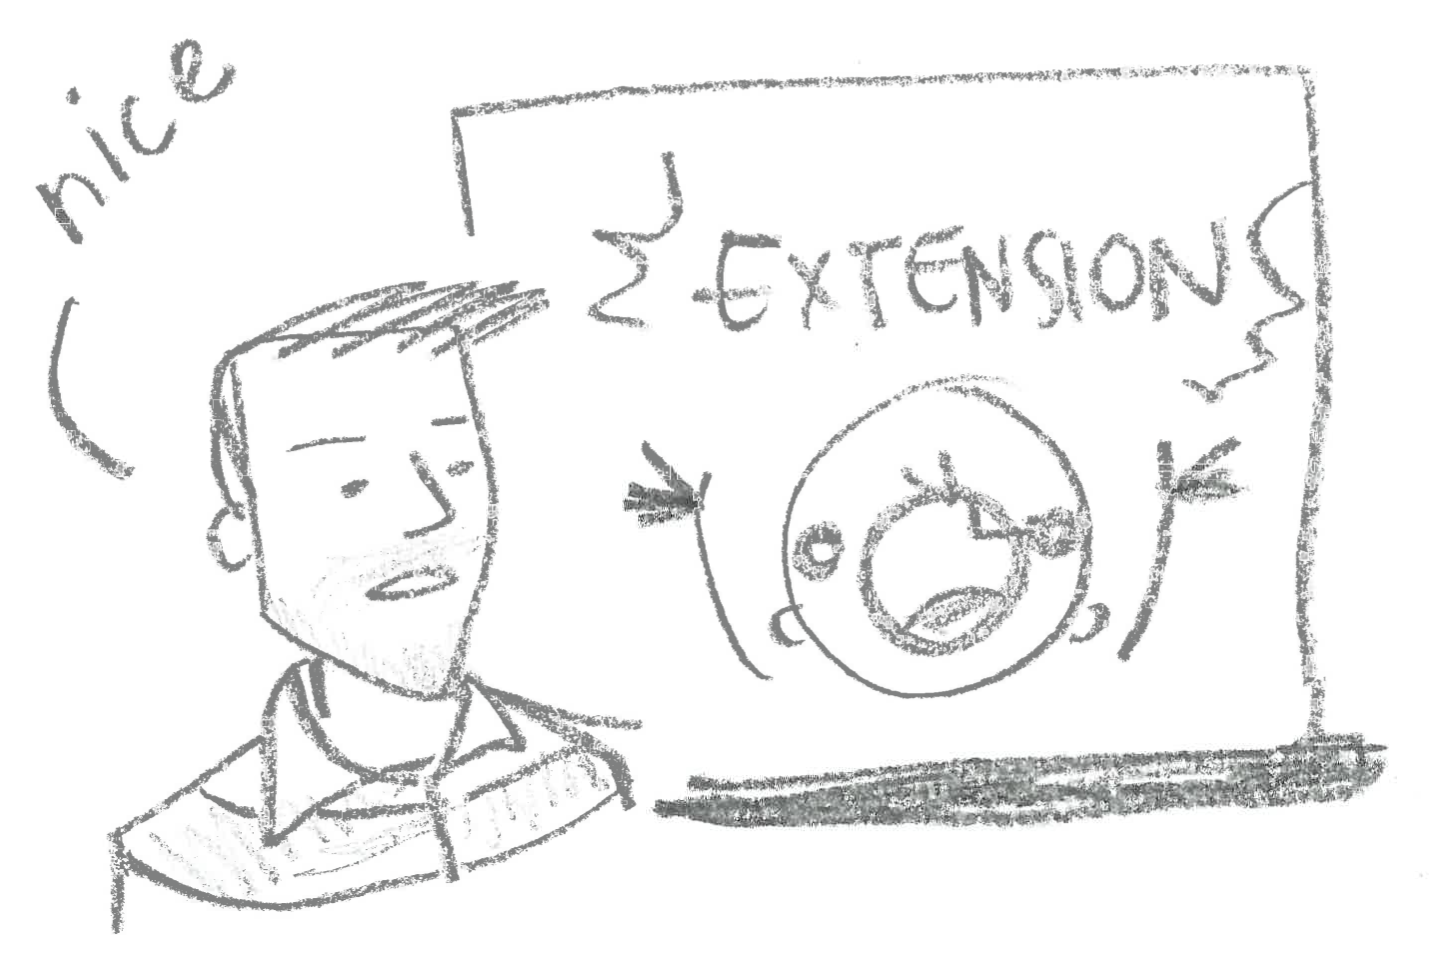 nice
EXTENSION